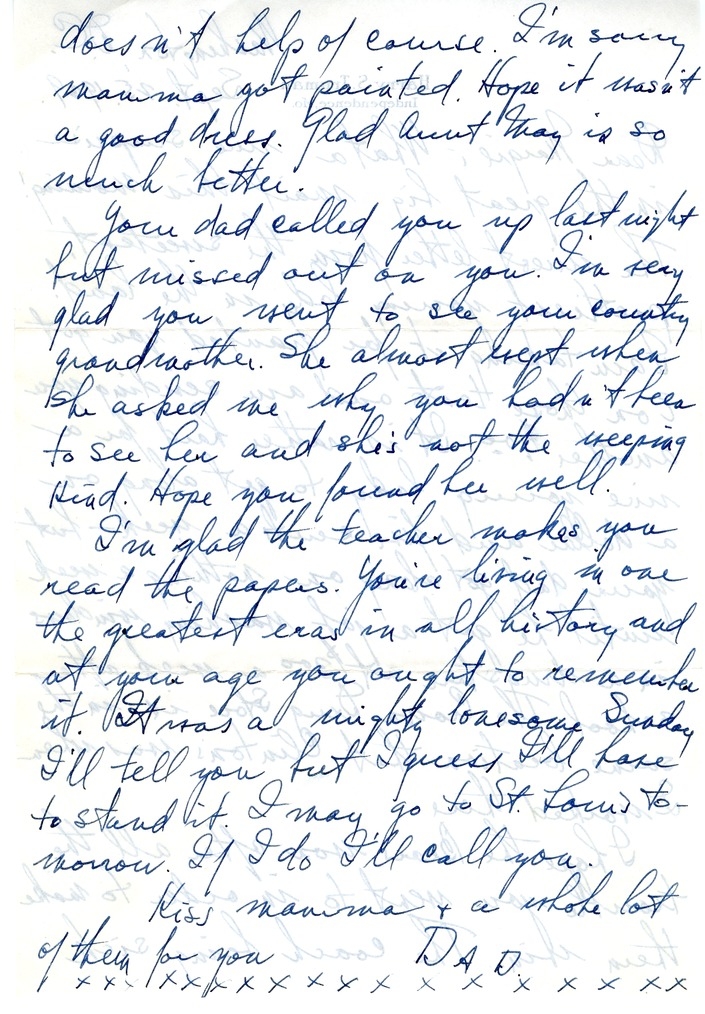 doesn't help of course. I'm sorry
mamma got painted. Hope it wasn't
a good dress. Glad Aunt May is so
much better.
Your dad called you up last night
but missed out on you. I'm very
glad you went to see your country
grandmother. She almost wept when
she asked me why you hadn't been
to see her and she's not the weeping
kind. Hope you found her well.
I'm glad the teacher makes you
read the papers. You're living in one
the greatest eras in all history and
at your age you ought to remember
it. It was a mighty lonesome Sunday
I'll tell you but I guess I'll have
to stand it. I may go to St. Louis to-
morrow. If I do I'll call you.
Kiss mamma + a whole lot
of them for you DAD.
x x x x x x x x x x x x x x x x x x